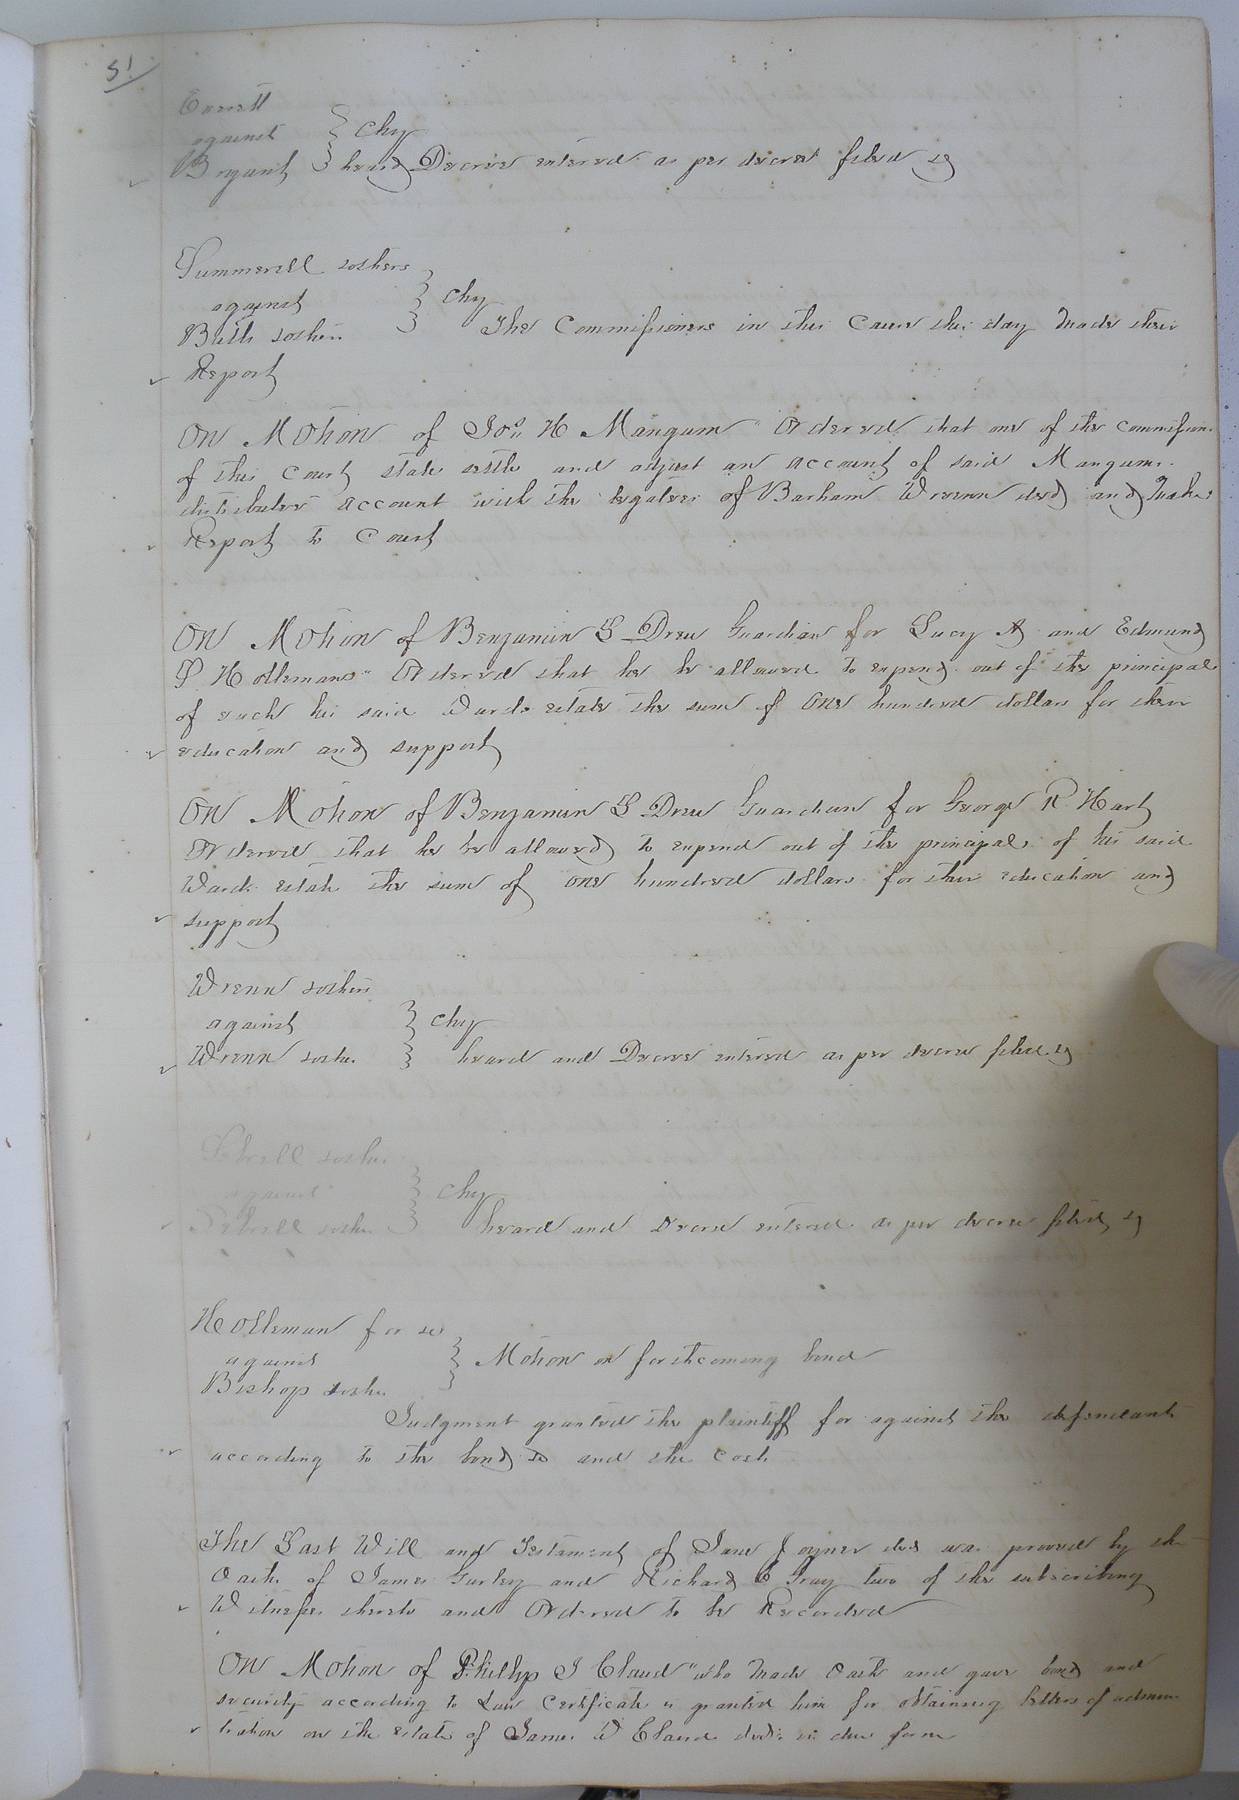 51
Everett
against } Chy
Bryant } heard Decree entered as per decree filed &c
Summerell & others
against } Chy
Butts & others The Commissioners in this Cause this day made their
Report
On Motion of Jos. H Mangum Ordered that one of the commission
of this Court state settle and adjust an account of said Mangums
distributive account with the legatees of Barham Wrenn decd and make
Report to Court
On Motion of Benjamin S Drew Guardian for Lucy A and Edmund
P Hollemans Ordered that he be allowed to expend out of the principal
of each his said Wards estate the sum of One hundred dollars for their
education and support
On Motion of Benjamin S Drew Guardian for George R Hart
Ordered that he be allowed to expend out of the principal of his said
Wards estate the sum of one hundred dollars for their education and
support
Wrenn & others
against } Chy
Wrenn & others } heard and Decree entered as per decree filed &c
& others
against } Chy
& others heard and decree entered as per decree filed &c
Holleman for &c
against } Motion on forthcoming bond
Bishop & others
Judgment granted the plaintiff for against the defendants
according to the bond &c and the costs
The Last Will and Testament of Jane Joyner decd was proved by the
Oaths of James Gurley and Richard E Gray two of the subscribing
Witnesses thereto and Ordered to be Recorded
On Motion of Phillip J Claud who made oath and gave bond and
security according to Law Certificate is granted him for obtaining letters of adminis
tration on the estate of James W Claud decd in due form